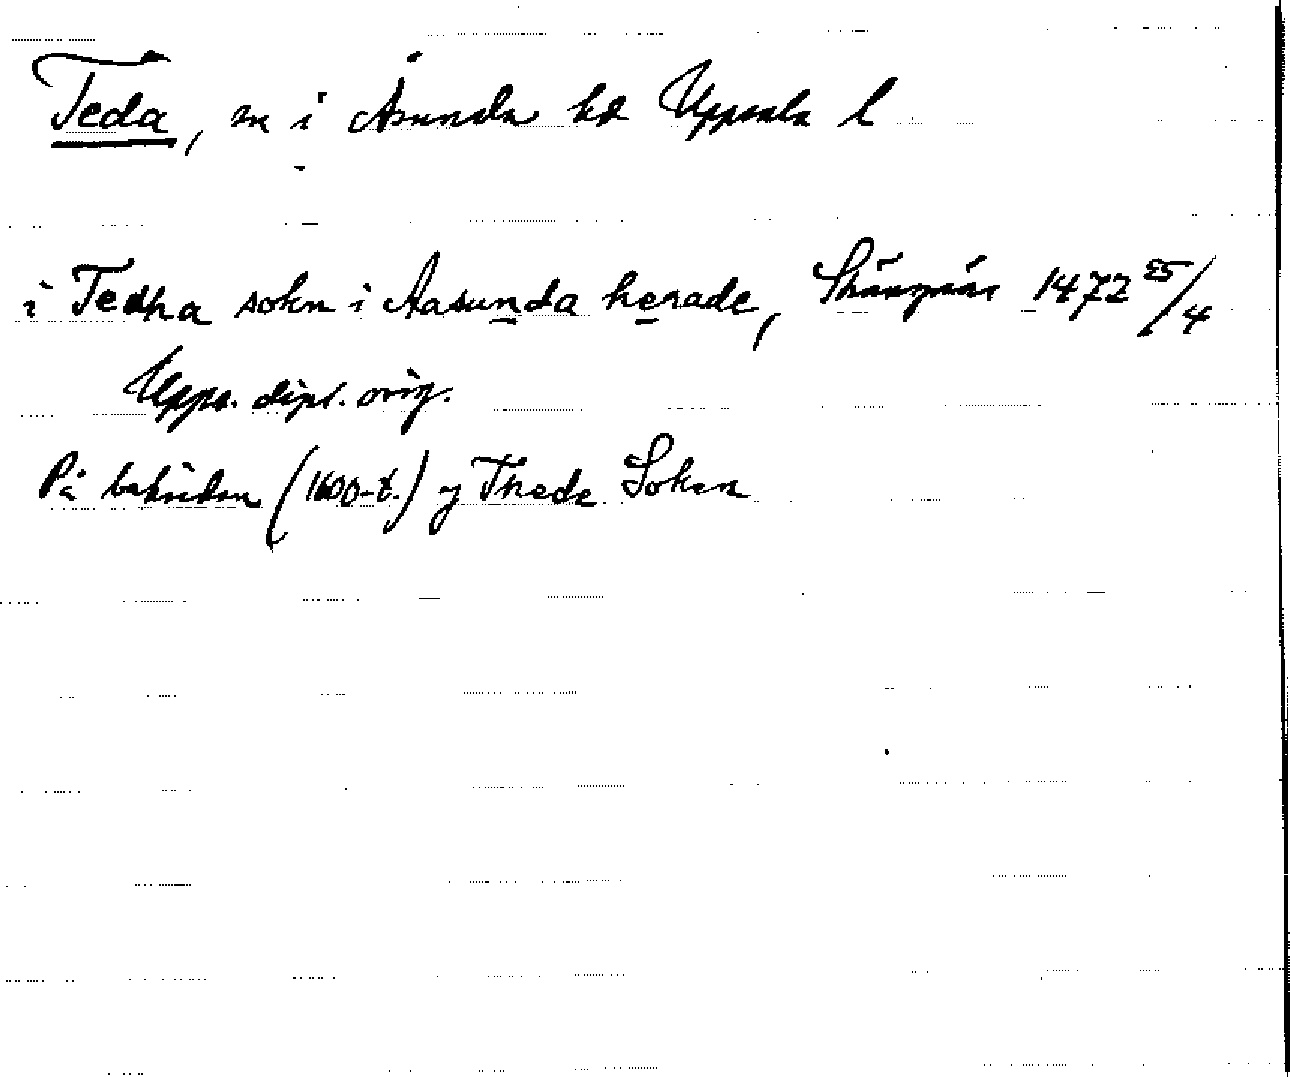 Teda, sn i Åsunda hd Uppsala l
i Tedha sokn i Aasunda herade, 1472 25/4
Upps. dipl. orig.
På baksidan (1600-t.) y Thede Soken